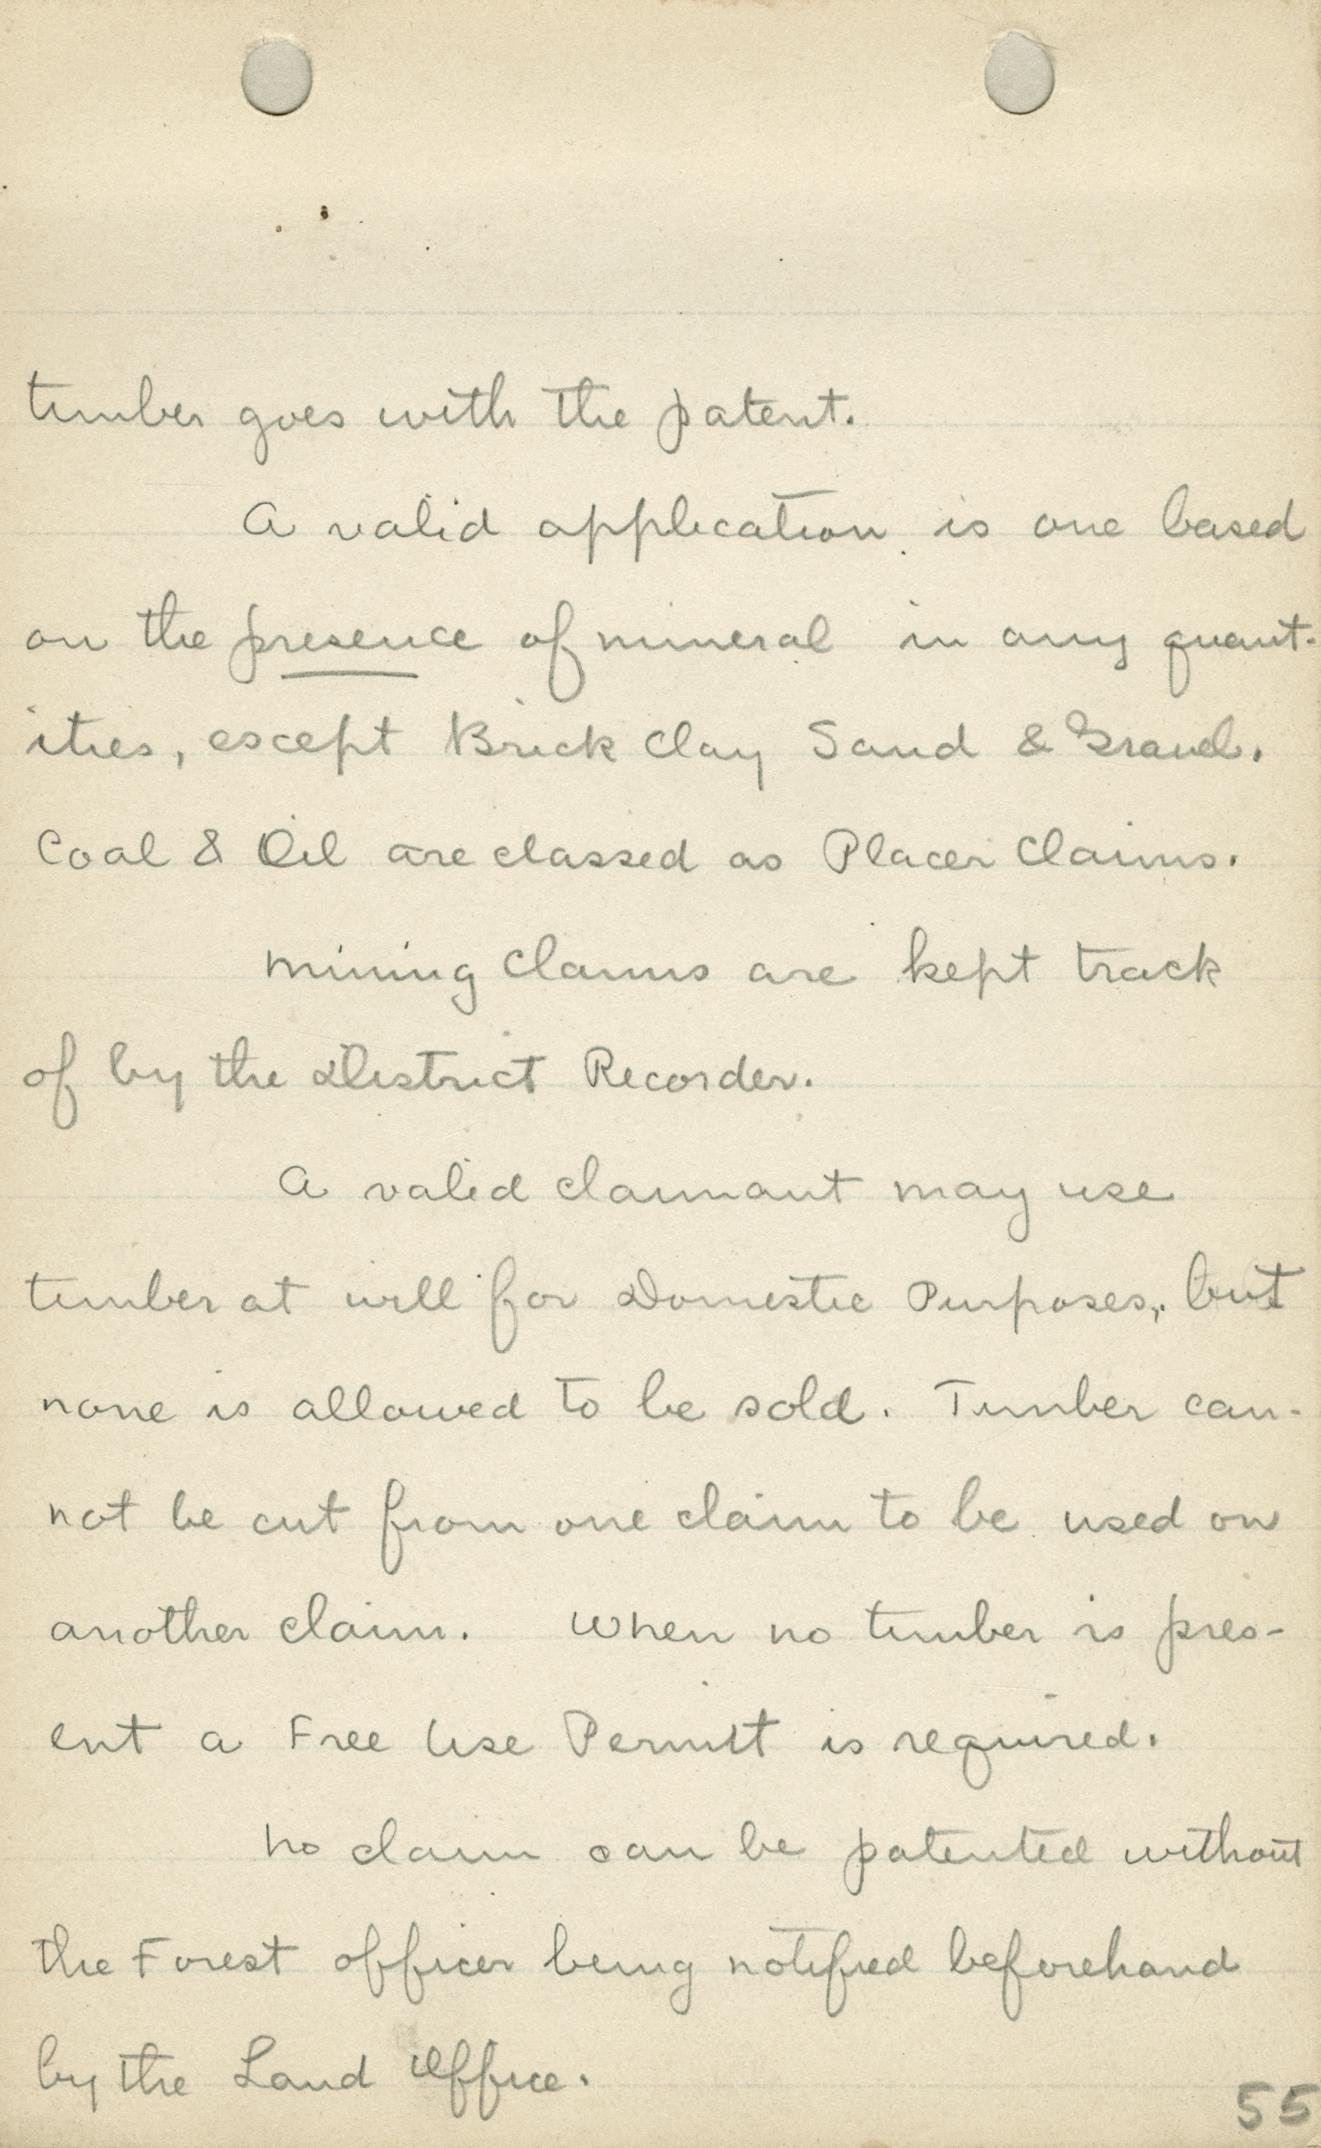 timber goes with the patent.
A valid application is one based
on the presence of mineral in any quant-
ities, except Brick Clay Sand & Gravel.
Coal & Oil are classed as Placer Claims.
Mining Claims are kept track
of by the District Recorder.
A valid claimant may use
timber at will for Domestic Purposes, but
none is allowed to be sold. Timber can-
not be cut from one claim to be used on
another claim. When no timber is pres-
ent a Free Use Permit is required.
No claim can be patented without
the Forest officer being notified beforehand
by the Land Office.
55